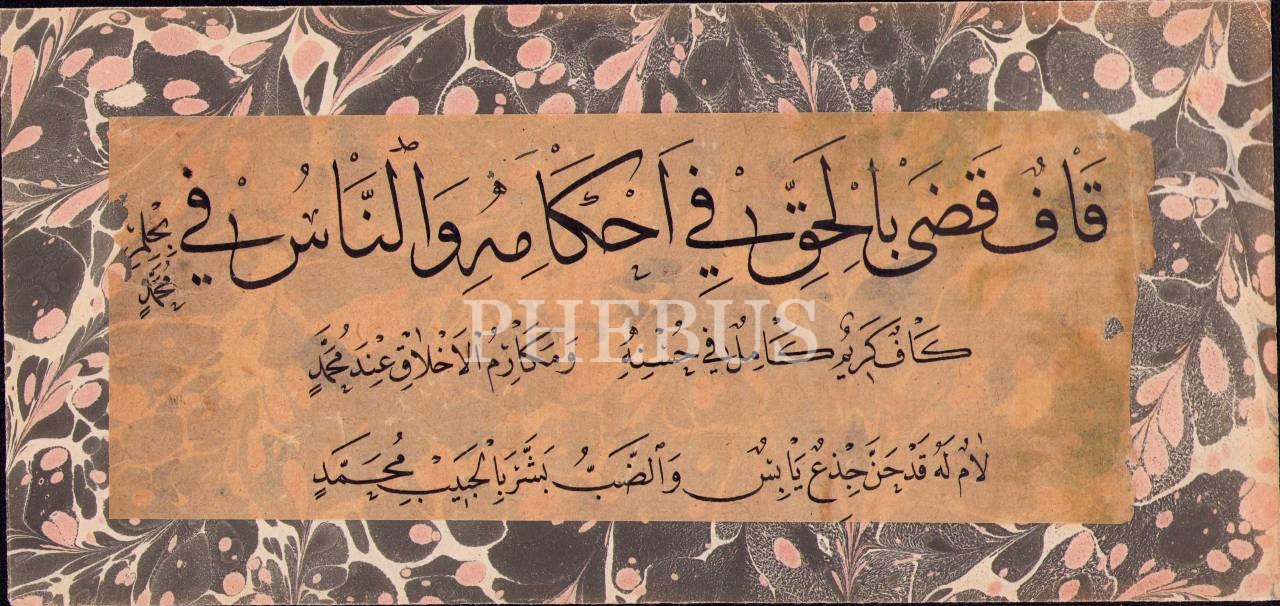 قَافٌ قَضَى بِالْحَقِّ فِي اَحْكَامِهِ وَالنَّاسُ فِي بِحِلْمِ مُحَمَّدٍ
كَافٌ كَرِيمٌ كَامِلٌ فِي حُسْنِهِ وَمَكَارِمُ الْاَخْلَاقِ عِنْدَ مُحَمَّدٍ
لَامٌ لَهُ قَدْ حَنَّ جِذْعٌ يَابِسٌ وَالضَّبُّ بَشَّرَ بِالْحَبِيبِ مُحَمَّدٍ
PHEBUS